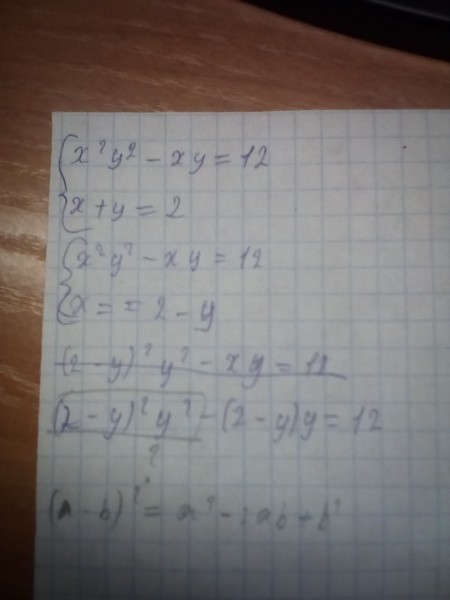 x²y² - xy = 12
x + y = 2
x²y² - xy = 12
x = = 2 - y
(2 - y)²y² - xy = 12
(2 - y)²y² - (2 - y)y = 12
?
(a - b)² = a² - 2ab + b²